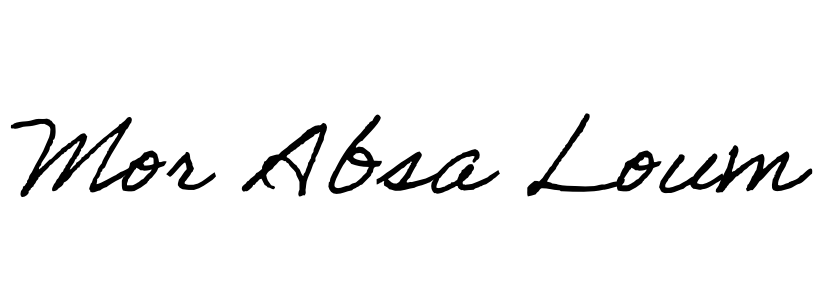 Mor Absa Loum